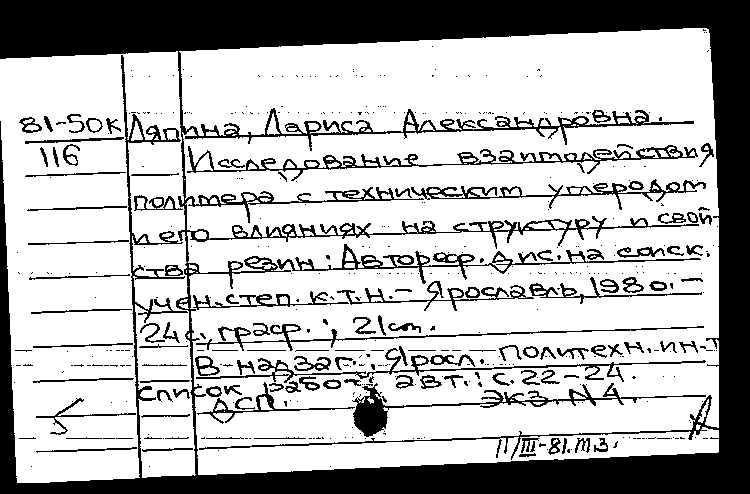 81-50К Ляпина, Лариса Александровна.
116 Исследование взаимодействия
полимера с техническим углеродом
и его влияниях на структуру и свой-
ства резин: Автореф. дис. на соиск.
учен. степ. к.т.н. - Ярославль, 1980. -
24 с., граф.; 21 см.
В надзаг.: Яросл. политехн. ин-т
Список работ авт.: с. 22-24.
ДСП. Экз. N 4.
11/III-81. М.З.